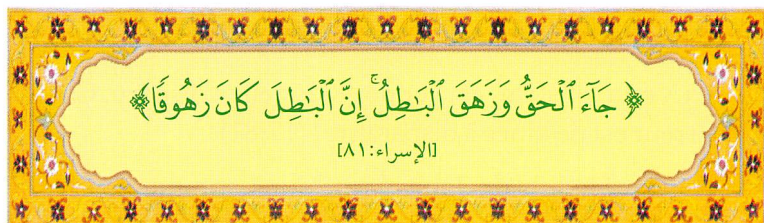 ﴿ جَآءَ ٱلْحَقُّ وَزَهَقَ ٱلْبَٰطِلُ ۚ إِنَّ ٱلْبَٰطِلَ كَانَ زَهُوقًا ﴾
[الإسراء: ٨١]